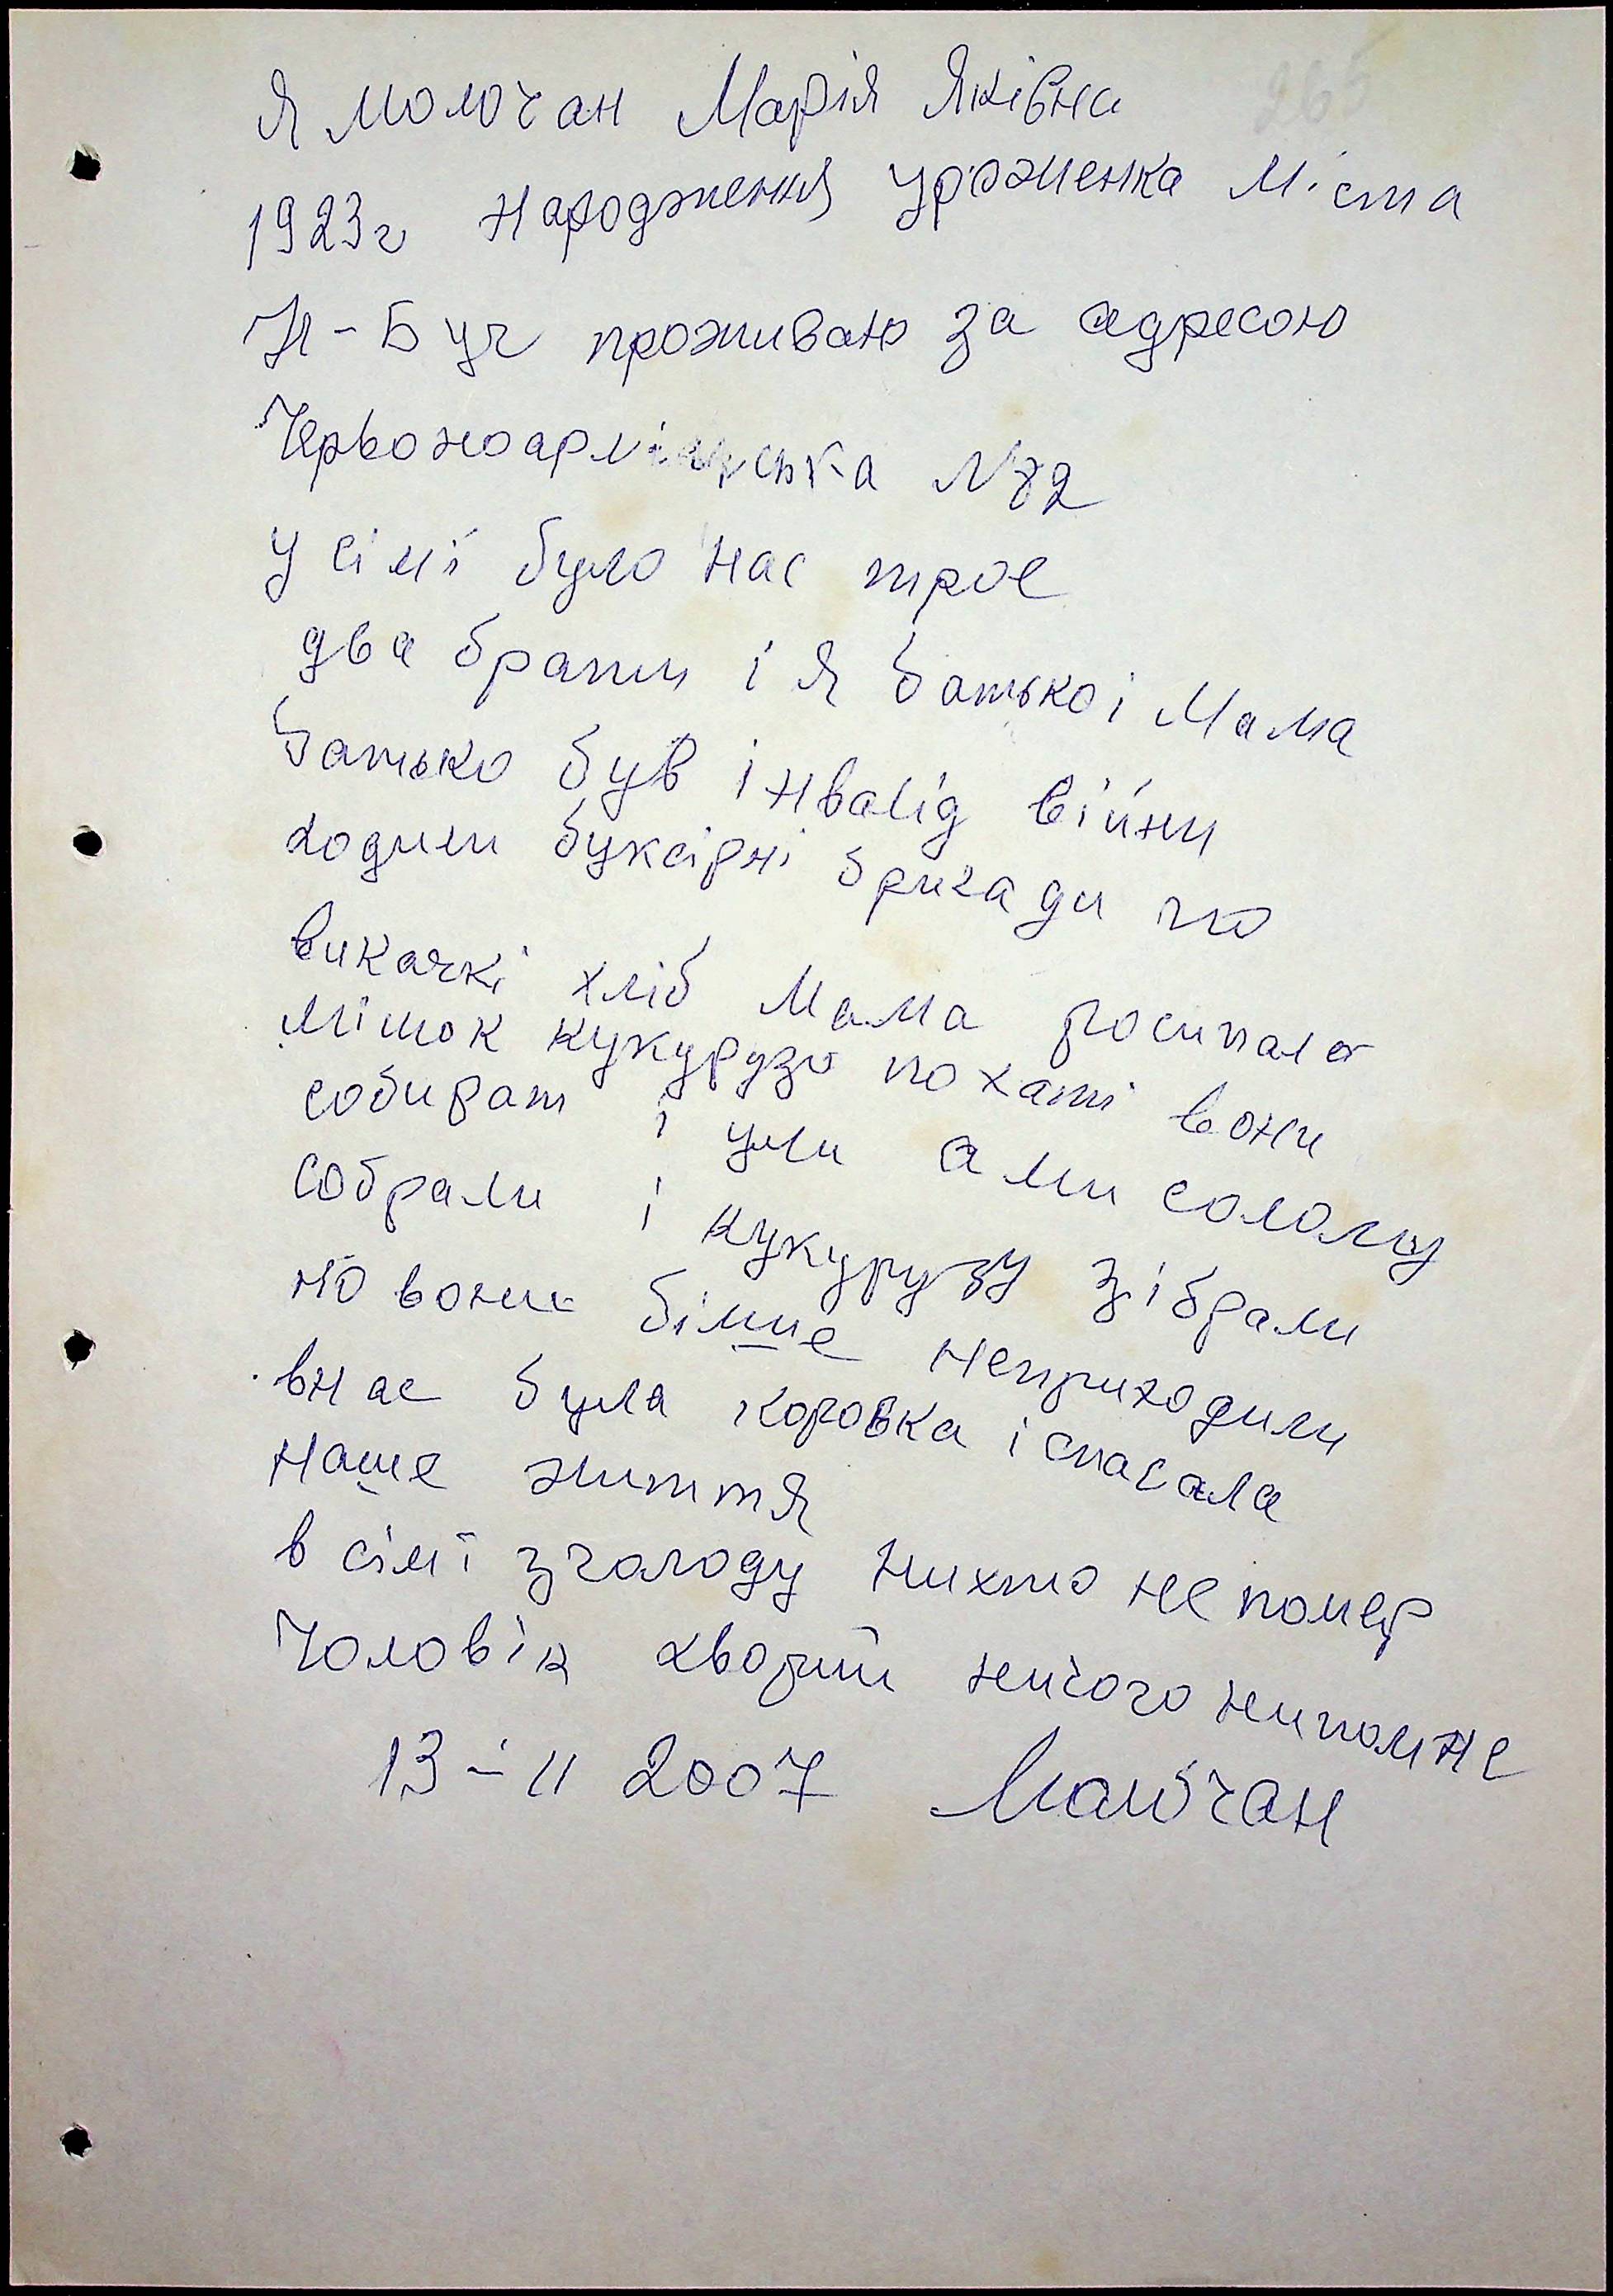 265
Я молочан Марія Яківна
1923г народження уроженка міста
Н-Буг проживаю за адресою
Червоноармійська N82
У сімї було нас троє
два брати і я батько і мама
батько був інвалід війни
ходили буксірні бригади по
викачкі хліб мама росипала
мішок кукурузи по хаті вони
собират і ушли а ми солому
собрали і кукурузу зібрали
но вони більше неприходили
внас була коровка і спасала
наше життя
в сімї зголоду нихто не помер
Чоловік хворий ничого нипомне
13-II 2007 Молочан